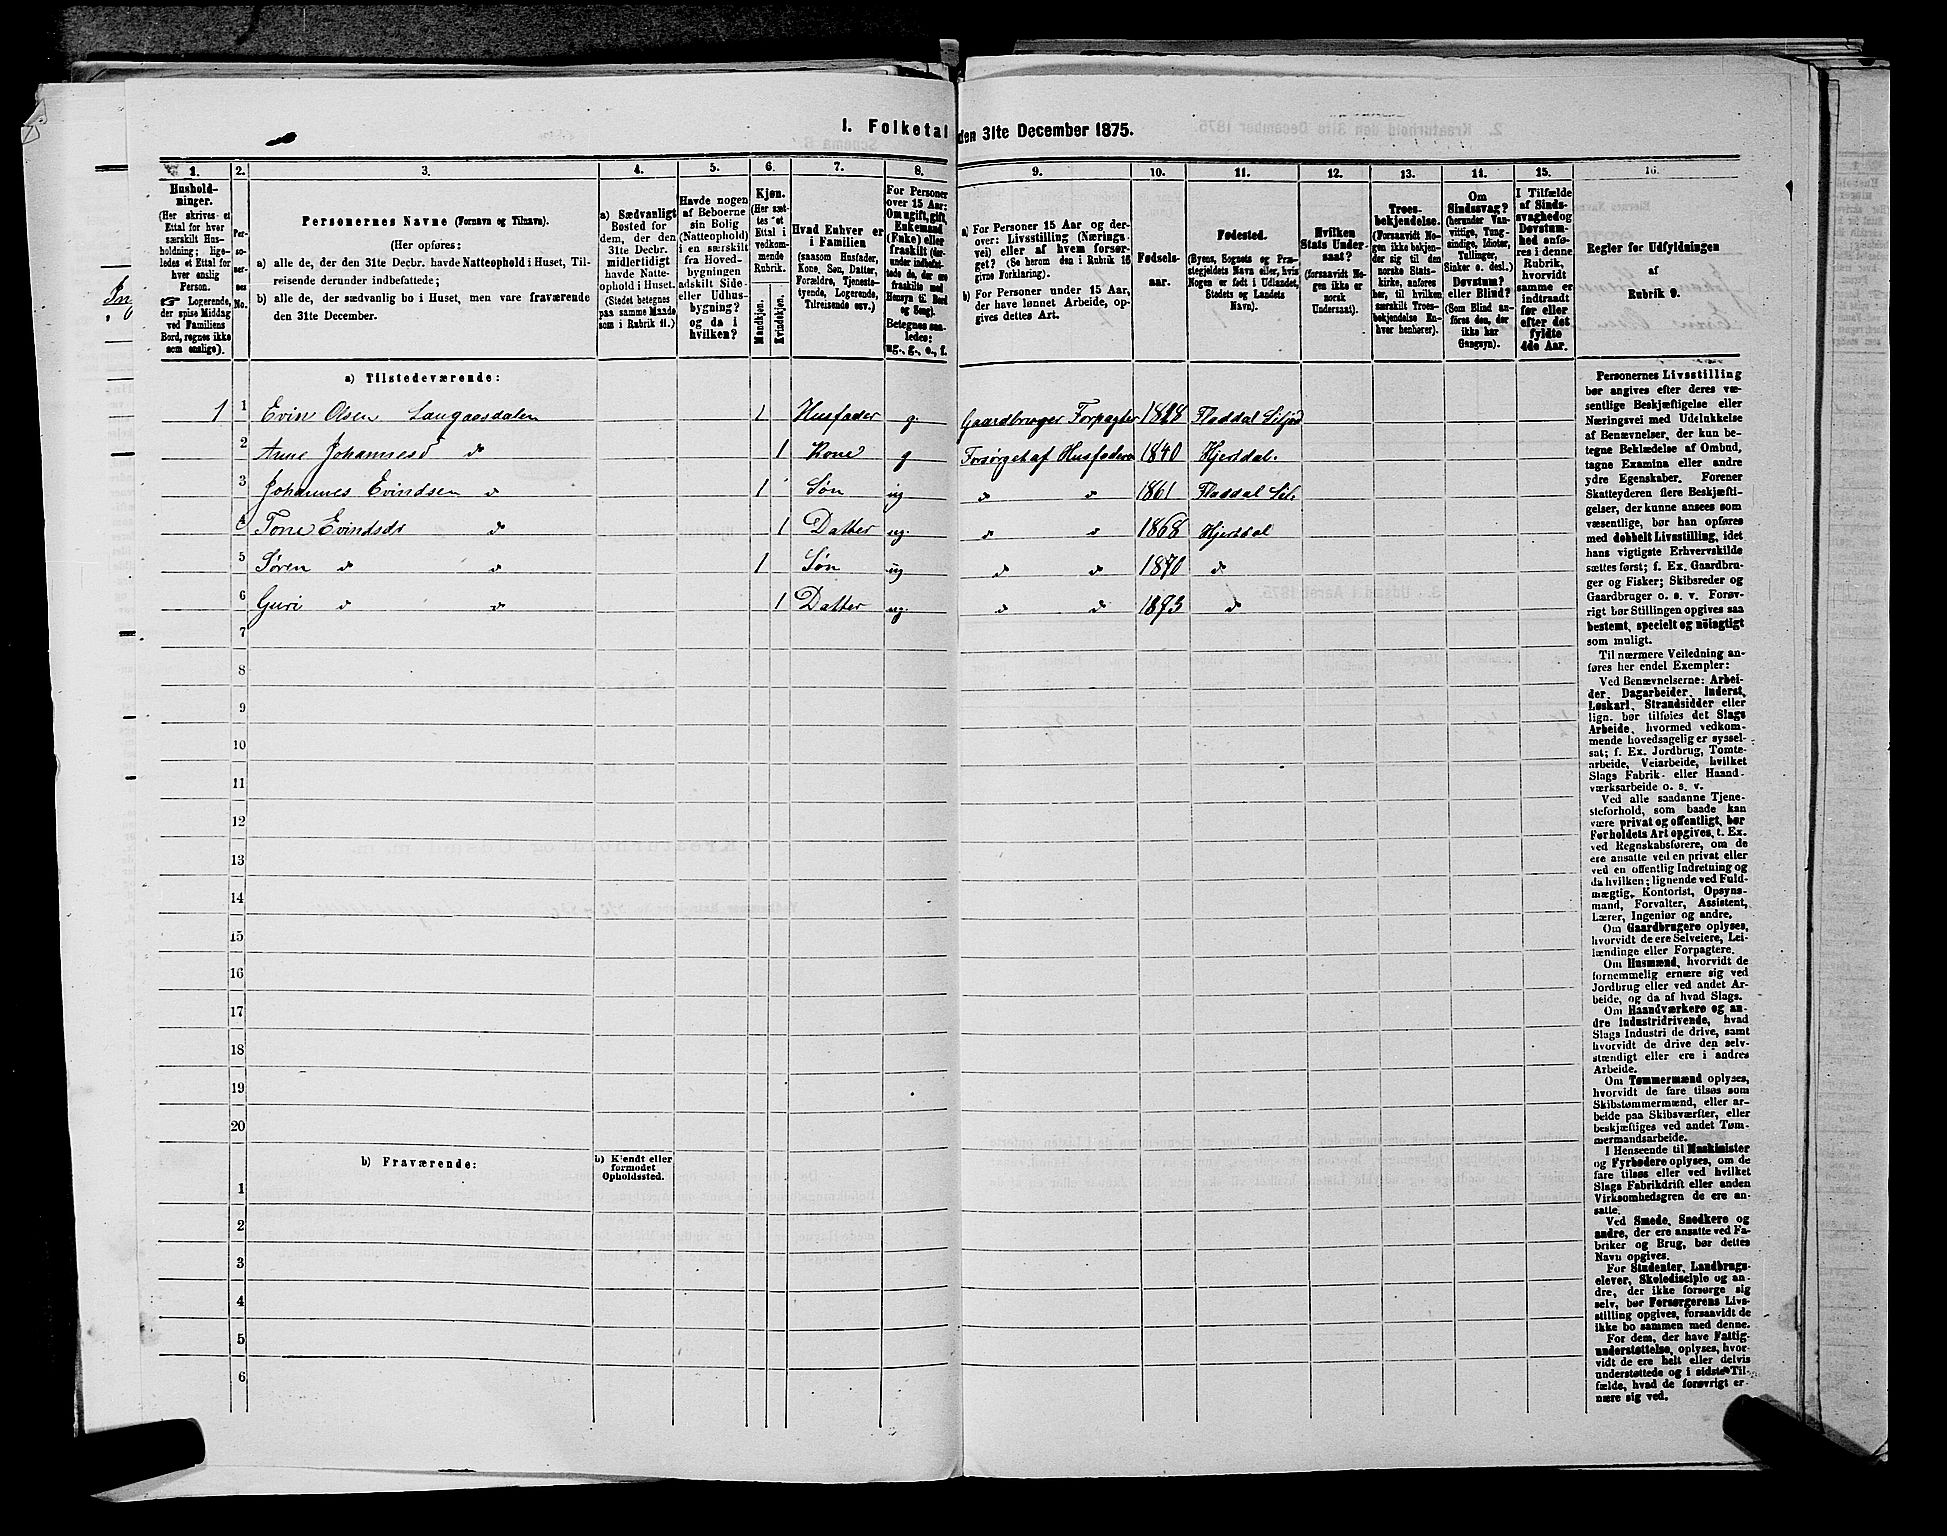 1. Folketal den 31te December 1875.
1. 2. 3. 4. 5. 6. 7. 8. 9. 10. 11. 12. 13. 14. 15. 16.
Hushold-
ninger.
(Her skrives et
Ettal for hver
særskilt Hus-
holdning; lige-
ledes et Ettal for
hver enslig
Person.
☞ Logerende,
der spise Middag
ved Familiens
Bord, regnes ikke
som enslige).
Per-
so-
ner-
nes
No.
Personernes Navne (Fornavn og Tilnavn).
(Her opføres:
a) alle de, der den 31te Decbr. havde Natteophold i Huset, Til-
reisende derunder indbefattede;
b) alle de, der sædvanlig bo i Huset, men vare fraværende
den 31te December.
a) Sædvanligt
Bosted for
dem, der den
31te Decbr.
midlertidigt
havde Natte-
ophold i Huset.
(Stedet betegnes
paa samme Maade
som i Rubrik 11.)
Havde nogen
af Beboerne
sin Bolig
(Natteophold)
i en særskilt
fra Hoved-
bygningen
adskilt Side-
eller Udhus-
bygning?
og da i
hvilken?
Kjøn.
(Her sæt-
tes et
Ettal i
vedkom-
mende
Rubrik.
Mandkjøn.
Kvindekjøn.
Hvad Enhver er
i Familien
(saasom Husfader,
Kone, Søn, Datter,
Forældre, Tjeneste-
tyende, Logerende,
Tilreisende osv.)
For Personer
over 15 Aar:
Om ugift, gift,
Enkemand
(Enke) eller
fraskilt (der-
under indbefat-
tede de, der ere
fraskilte med
Hensyn til Bord
og Seng).
Betegnes saa-
ledes:
ug., g., e., f.
a) For Personer 15 Aar og der-
over: Livsstilling (Nærings-
vei) eller af hvem forsør-
get? (Se herom den i Rubrik 16
givne Forklaring).
b) For Personer under 15 Aar,
der have lønnet Arbeide, op-
gives dettes Art.
Fødsels-
aar.
Fødested.
(Byens, Sognets og Præ-
stegjeldets Navn eller, hvis
Nogen er født i Udlandet,
Stedets og Landets
Navn).
Hvilken
Stats Under-
saat?
(forsaavidt No-
gen ikke er
norsk
Undersaat).
Troes-
bekjendelse.
(Forsaavidt No-
gen ikke bekjen-
der sig til den
norske Stats-
kirke, anføres
her, til hvilken
særskilt Troes-
bekjendelse En-
hver henhører).
Om
Sindssvag?
(herunder Van-
vittige, Tung-
sindige, Idioter,
Tullinger,
Sinker o. desl.)
Døvstum?
eller Blind?
(Som Blind an-
føres den, der
ikke har
Gangsyn).
I Tilfælde
af Sinds-
svaghed og
Døvstum-
hed anfø-
res i denne
Rubrik,
hvorvidt
samme er
indtraadt
før eller
efter det
fyldte
4de Aar.
Regler for Udfyldningen
af
Rubrik 9.
a) Tilstedeværende:
1 1 Evin Olsen Langaasdalen 1 Husfader g Gaardbruger Forpagter 1828 Fladdal Siljod
2 Anne Johannesd do 1 Kone g Forsørget af Husfaderen 1840 Hjertdal.
3 Johannes Evindsen do 1 Søn ug do do 1861 Fladdal Sil.
4 Tone Evindsdr do 1 Datter ug. do do 1868 Hjertdal
5 Søren do do 1 Søn ug do do 1870 do
6 Guri do do 1 Datter ug. do do 1873 do
7
8
9
10
11
12
13
14
15
16
17
18
19
20
b) Fraværende:
b) Kjendt eller
formodet
Opholdssted.
1
2
3
4
5
6
Personernes Livsstilling
bør angives efter deres væ-
sentlige Beskjæftigelse eller
Næringsvei med Udelukkelse
af Benævnelser, der kun be-
tegne Beklædelse af Ombud,
tagne Examina eller andre
ydre Egenskaber. Forener
Skatteyderen flere Beskjæfti-
gelser, der kunne ansees som
væsentlige, bør han opføres
med dobbelt Livsstilling, idet
hans vigtigste Erhvervskilde
sættes først; f. Ex. Gaardbru-
ger og Fisker; Skibsreder og
Gaardbruger o. s. v. Forøv-
rigt bør Stillingen opgives saa
bestemt, specielt og nöiagtigt
som muligt.
Til nærmere Veiledning an-
føres her endel Exempler:
Ved Benævnelserne: Arbei-
der, Dagarbeider, Inderst,
Løskarl, Strandsidder eller
lign. bør tilføies det Slags
Arbeide, hvormed vedkom-
mende hovedsagelig er syssel-
sat; f. Ex. Jordbrug, Tomte-
arbeide, Veiarbeide, hvilket
Slags Fabrik- eller Haand-
værksarbeide o. s. v.
Ved alle saadanne Tjene-
steforhold, som baade kan
være privat og offentligt, bør
Forholdets Art opgives, t. Ex.
ved Regnskabsførere, om de
ere ansatte ved en privat eller
ved en offentlig Indretning og
da hvilken; lignende ved Fuld-
mægtig, Kontorist, Opsyns-
mand, Forvalter, Assistent,
Lærer, Ingeniør og andre.
Om Gaardbrugere oplyses,
hvorvidt de ere Selveiere, Lei-
lændinge eller Forpagtere.
Om Husmænd, hvorvidt de
fornemmelig ernære sig ved
Jordbrug eller ved andet Ar-
beide, og da af hvad Slags.
Om Haandværkere og an-
dre Industridrivende, hvad
Slags Industri de drive, samt
hvorvidt de drive den selv-
stændigt eller ere i andres
Arbeide.
Om Tømmermænd oplyses,
hvorvidt de fare tilsøs som
Skibstømmermænd, eller ar-
beide paa Skibsværfter, eller
beskjæftiges ved andet Tøm-
mermandsarbeide.
I Henseende til Maskinister
og Fyrbødere oplyses, om de
fare tilsøs eller ved hvilket
Slags Fabrikdrift eller anden
Virksomhedsgren de ere an-
satte.
Ved Smede, Snedkere og
andre, der ere ansatte ved Fa-
briker og Brug, bør dettes
Navn opgives.
For Studenter, Landbrugs-
elever, Skoledisciple og an-
dre, der ikke forsørge sig
selv, bør Forsørgerens Livs-
stilling opgives, forsaavidt de
ikke bo sammen med denne.
For dem, der have Fattig-
understøttelse, oplyses, hvor-
vidt de ere helt eller delvis
understøttede og i sidste Til-
fælde, hvad de forøvrigt er-
nære sig ved.